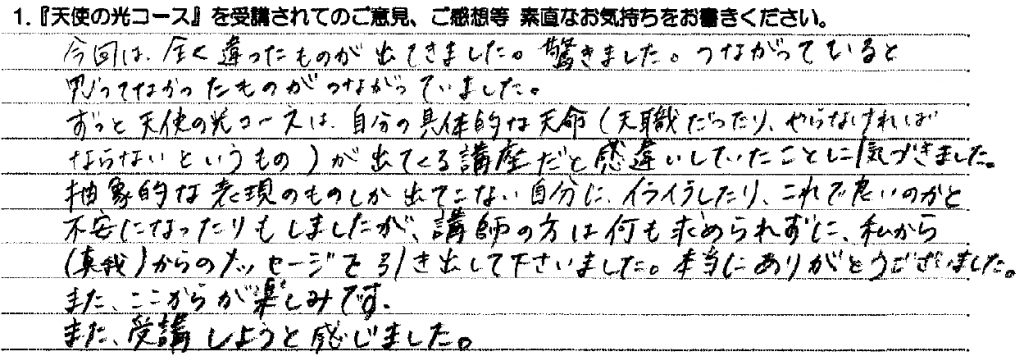 1.『天使の光コース』を受講されてのご意見、ご感想等 素直なお気持ちをお書きください。
今回は、全く違ったものが出てきました。驚きました。つながっていると
思ってなかったものがつながっていました。
ずっと天使の光コースは、自分の具体的な天命（天職だったり、やらなければ
ならないというもの）が出てくる講座だと感違いしていたことに気づきました。
抽象的な表現のものしか出てこない自分に、イライラしたり、これで良いのかと
不安になったりもしましたが、講師の方は何も求められずに、私から
（真我）からのメッセージを引き出して下さいました。本当にありがとうございました。
また、ここからが楽しみです。
また、受講しようと感じました。